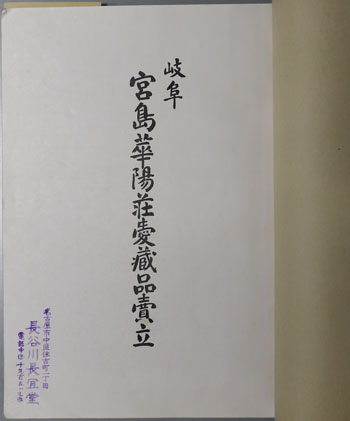 岐阜
宮島華陽荘愛藏品賣立
名古屋市中區住吉町一丁目
長谷川長宜堂